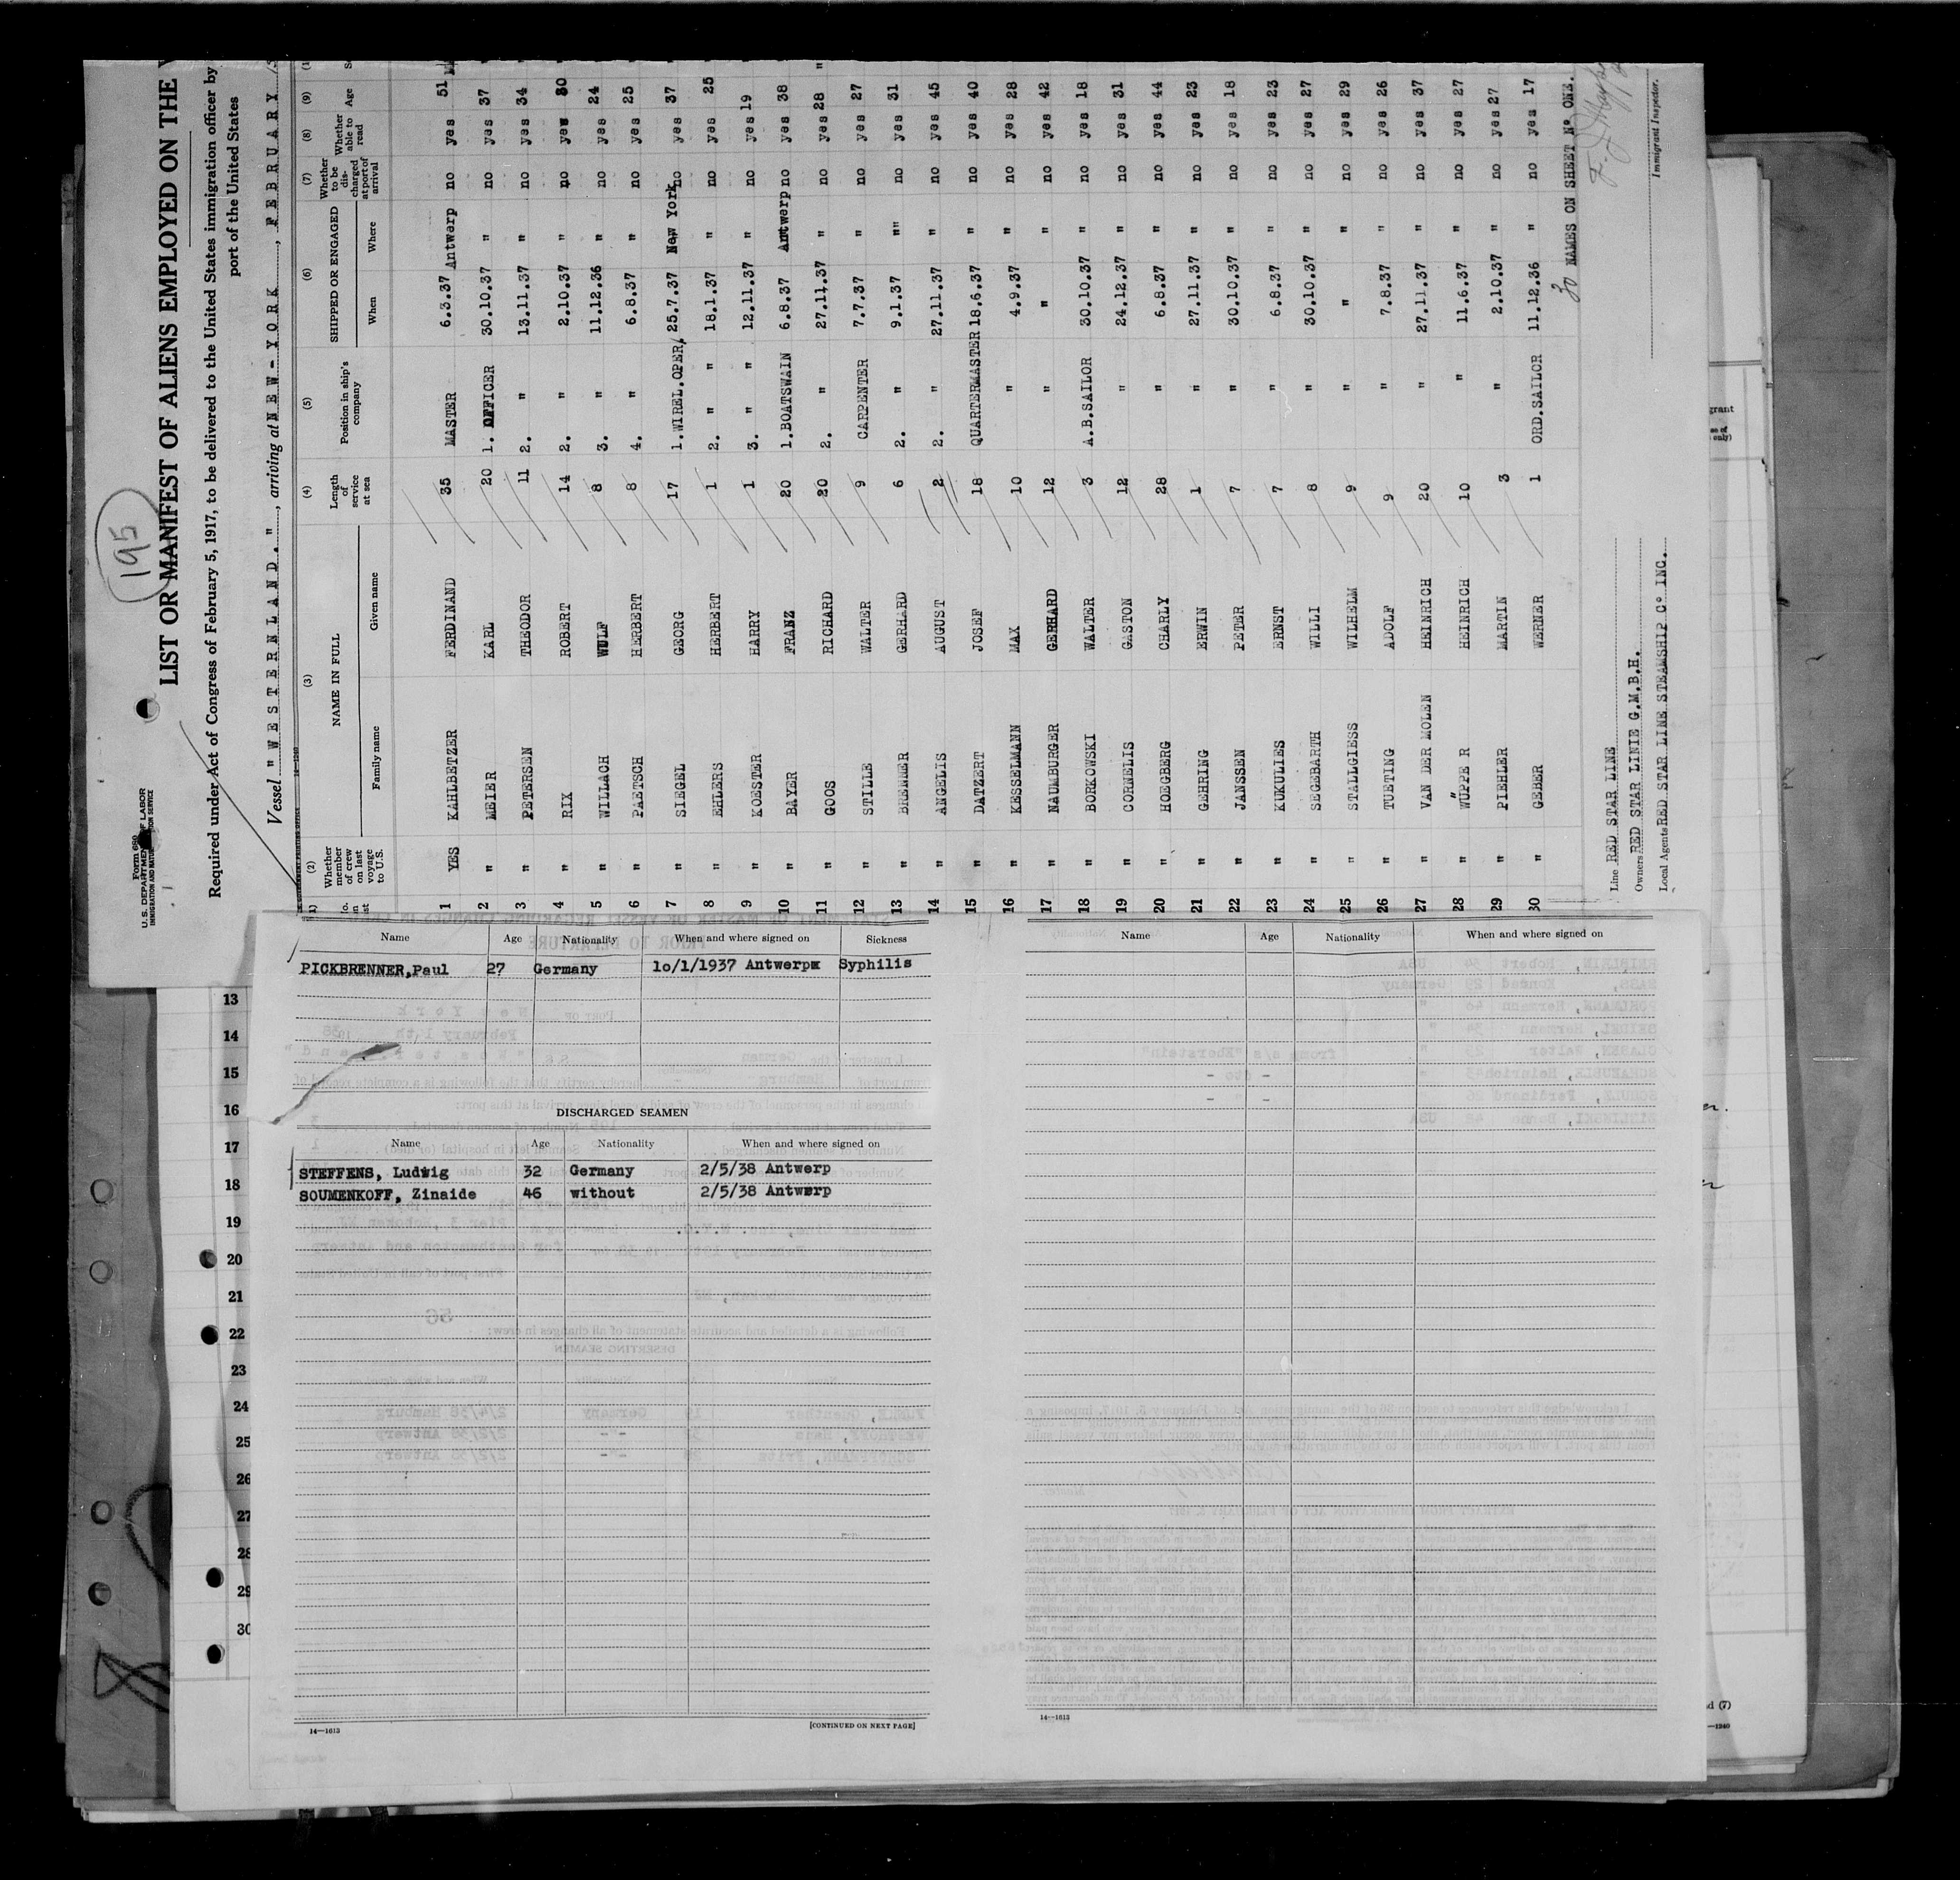 195
Form 680
U.S. DEPARTMENT OF LABOR
IMMIGRATION AND NATURALIZATION SERVICE
LIST OR MANIFEST OF ALIENS EMPLOYED ON THE
Required under Act of Congress of February 5, 1917, to be delivered to the United States immigration officer by
port of the United States
Vessel "WESTERNLAND.", arriving at NEW-YORK, FEBRUARY
(2) Whether member of crew on last voyage to U.S. (3) NAME IN FULL Family name Given name (4) Length of service at sea (5) Position in ship's company (6) SHIPPED OR ENGAGED When Where (7) Whether to be discharged at port of arrival (8) Whether able to read (9) Age
1 YES KAHLBETZER FERDINAND 35 MASTER 6.3.37 Antwerp no yes 51
2 " MEIER KARL 20 1. OFFICER 30.10.37 " no yes 37
3 " PETERSEN THEODOR 11 2. " 13.11.37 " no yes 34
4 " RIX ROBERT 14 2. " 2.10.37 " no yes 30
5 " WILLACH WULF 8 3. " 11.12.36 " no yes 24
6 " PAETSCH HERBERT 8 4. " 6.8.37 " no yes 25
7 " SIEGEL GEORG 17 1.WIREL.OPER. 25.7.37 New York no yes 37
8 " EHLERS HERBERT 1 2. " 18.1.37 " no yes 25
9 " KOESTER HARRY 1 3. " 12.11.37 " no yes 19
10 " BAYER FRANZ 20 1.BOATSWAIN 6.8.37 Antwerp no yes 38
11 " GOOS RICHARD 20 2. " 27.11.37 " no yes 28 "
12 " STILLE WALTER 9 CARPENTER 7.7.37 " no yes 27
13 " BREMMER GERHARD 6 2. " 9.1.37 "" no yes 31
14 " ANGELIS AUGUST 2 2. " 27.11.37 " no yes 45
15 " DATZERT JOSEF 18 QUARTERMASTER 18.6.37 " no yes 40
16 " KESSELMANN MAX 10 " 4.9.37 " no yes 28
17 " NAUMBURGER GERHARD 12 " " " no yes 42
18 " BORKOWSKI WALTER 3 A.B.SAILOR 30.10.37 " no yes 18
19 " CORNELIS GASTON 12 " 24.12.37 " no yes 31
20 " HOEGBERG CHARLY 28 " 6.8.37 " no yes 44
21 " GEHRING ERWIN 1 " 27.11.37 " no yes 23
22 " JANSSEN PETER 7 " 30.10.37 " no yes 18
23 " KUKULIES ERNST 7 " 6.8.37 " no yes 23
24 " SEGEBARTH WILLI 8 " 30.10.37 " no yes 27
25 " STALLGIESS WILHELM 9 " " " no yes 29
26 " TUETING ADOLF 9 " 7.8.37 " no yes 26
27 " VAN DER MOLEN HEINRICH 20 " 27.11.37 " no yes 37
28 " WÜPPE R HEINRICH 10 " 11.6.37 " no yes 27
29 " PIEHLER MARTIN 3 " 2.10.37 " no yes 27
30 " GEBER WERNER 1 ORD.SAILOR 11.12.36 " no yes 17
30 NAMES ON SHEET No ONE.
Line RED STAR LINE
Owners RED STAR LINIE G.M.B.H.
Local Agents RED STAR LINE STEAMSHIP Co INC.
Immigrant Inspector.
Name Age Nationality When and where signed on Sickness
PICKBRENNER,Paul 27 Germany 1o/1/1937 Antwerpx Syphilis
DISCHARGED SEAMEN
Name Age Nationality When and where signed on
STEFFENS, Ludwig 32 Germany 2/5/38 Antwerp
SOUMENKOFF, Zinaide 46 without 2/5/38 Antwerp
14—1613
[CONTINUED ON NEXT PAGE]
Name Age Nationality When and where signed on
14—1613
13
14
15
16
17
18
19
20
21
22
23
24
25
26
27
28
29
30